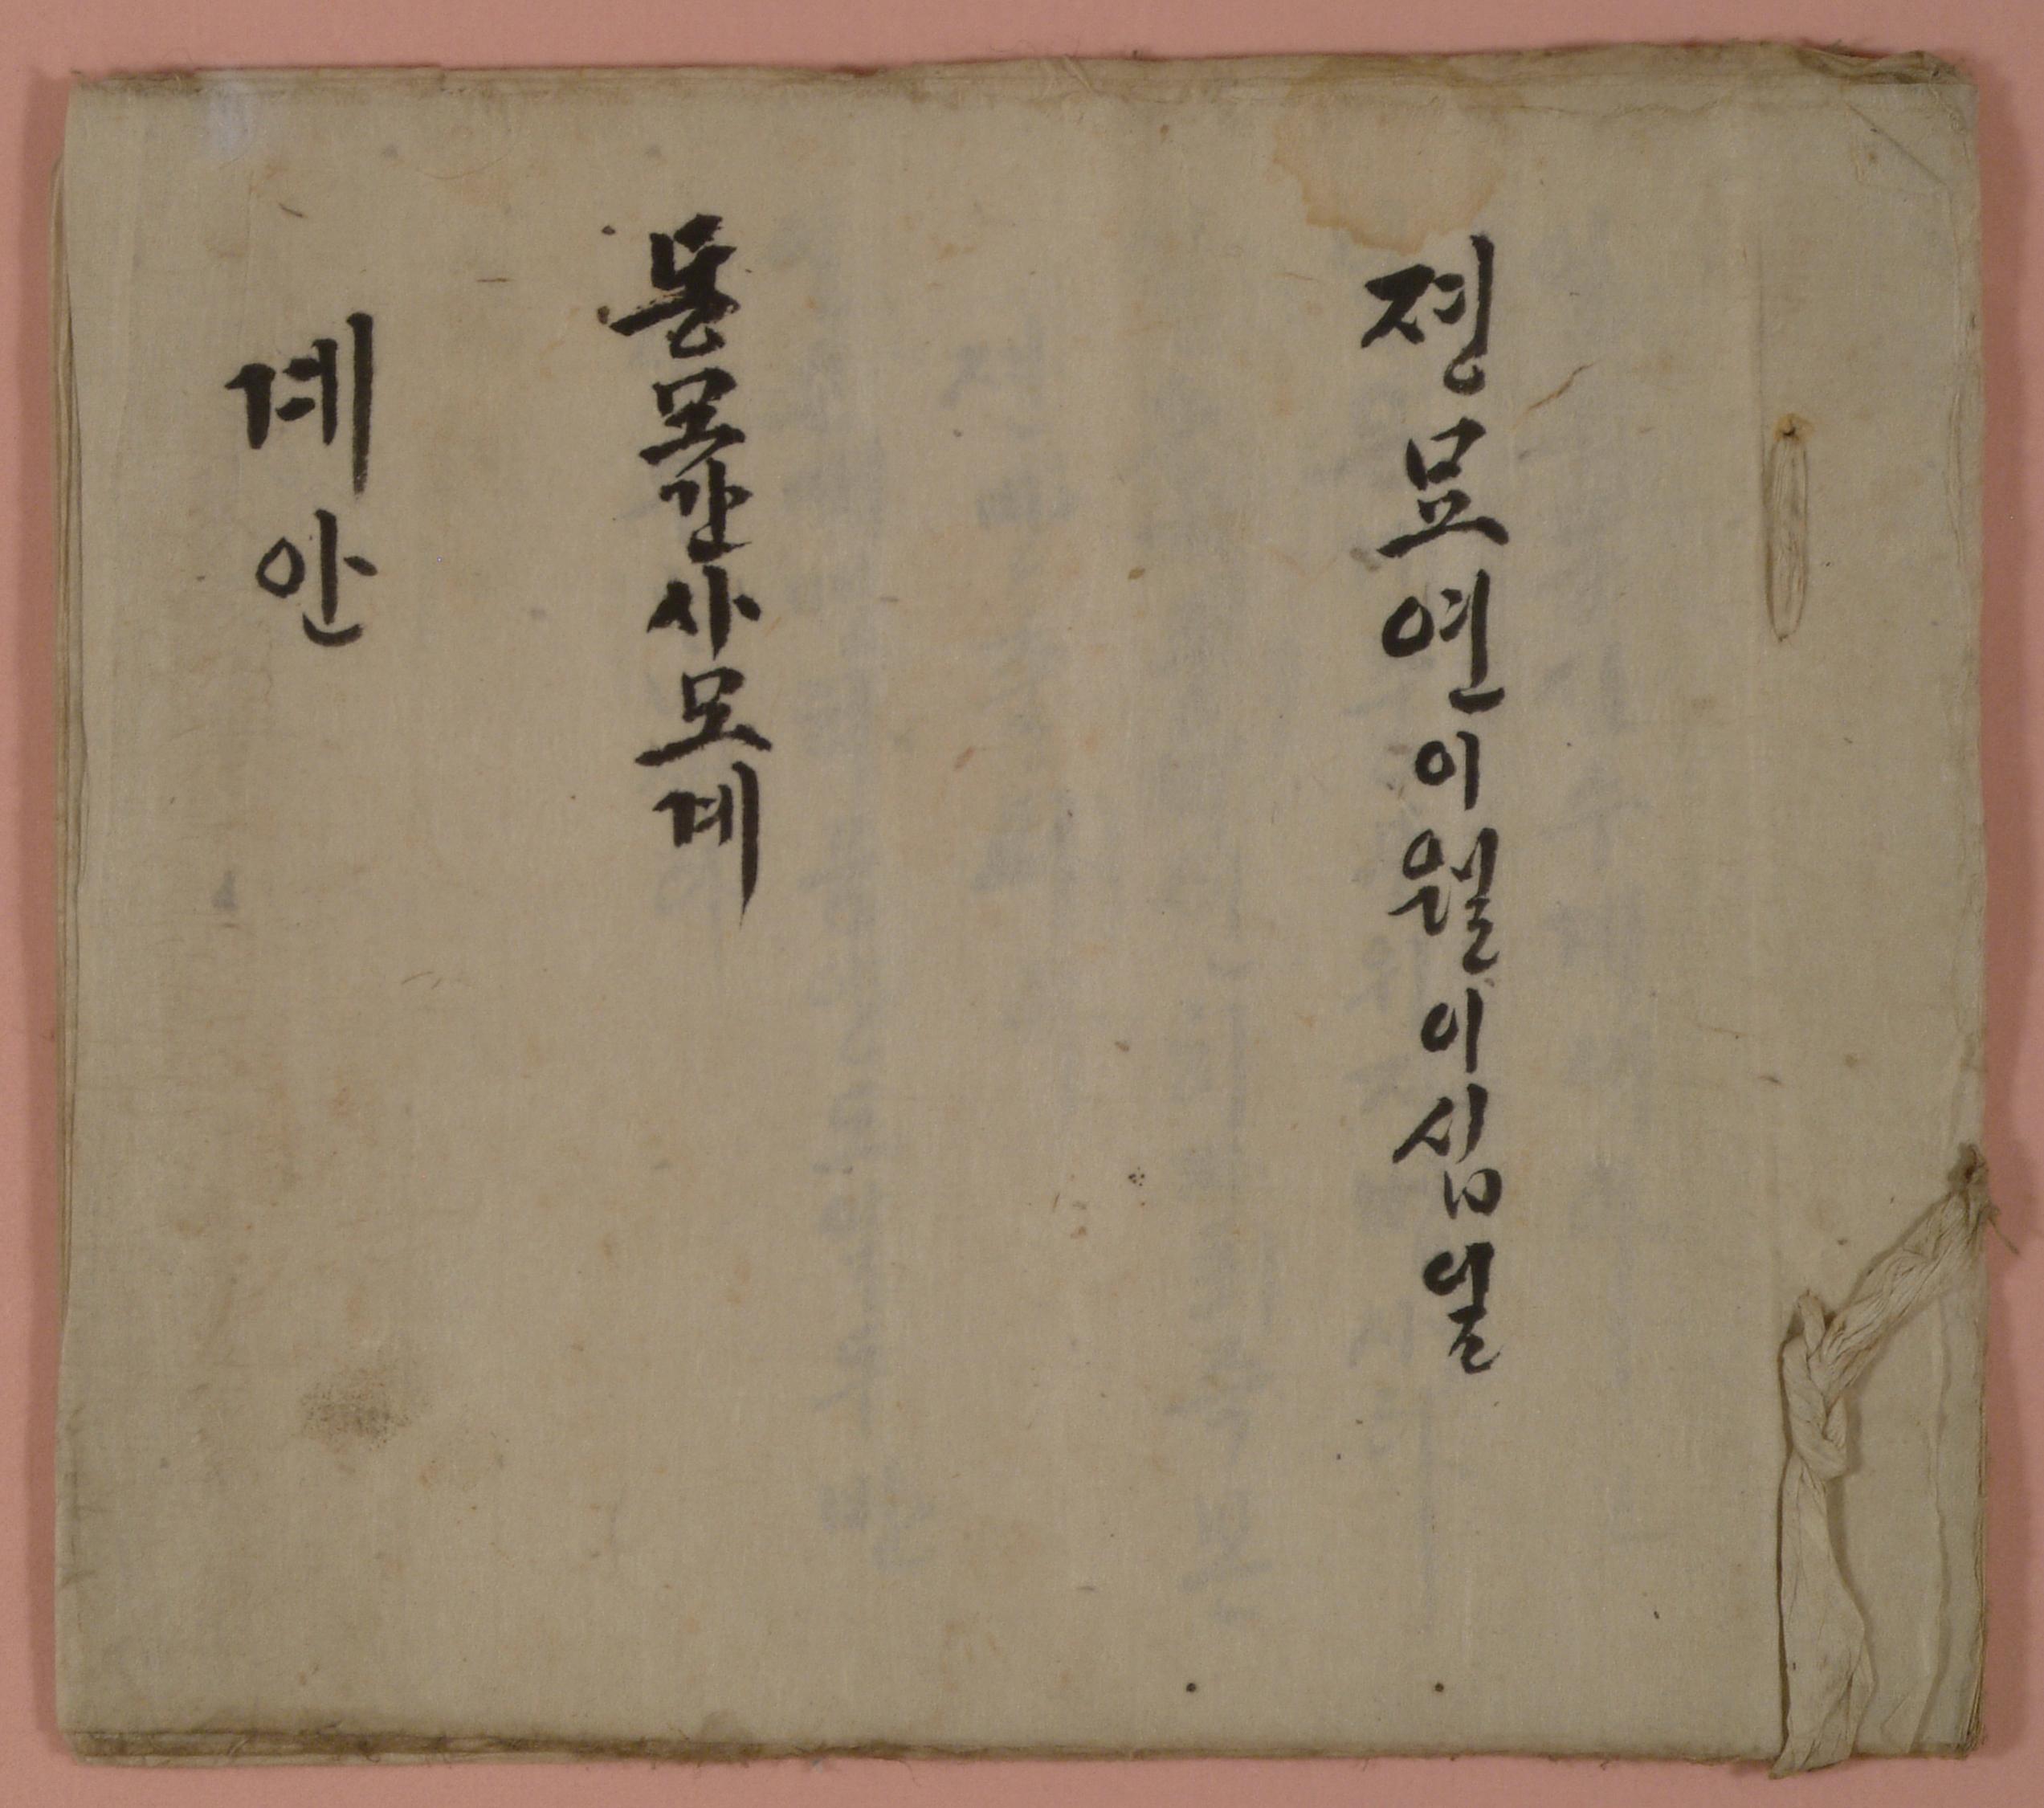 졍묘연이월이십일
동모간사모계
계안